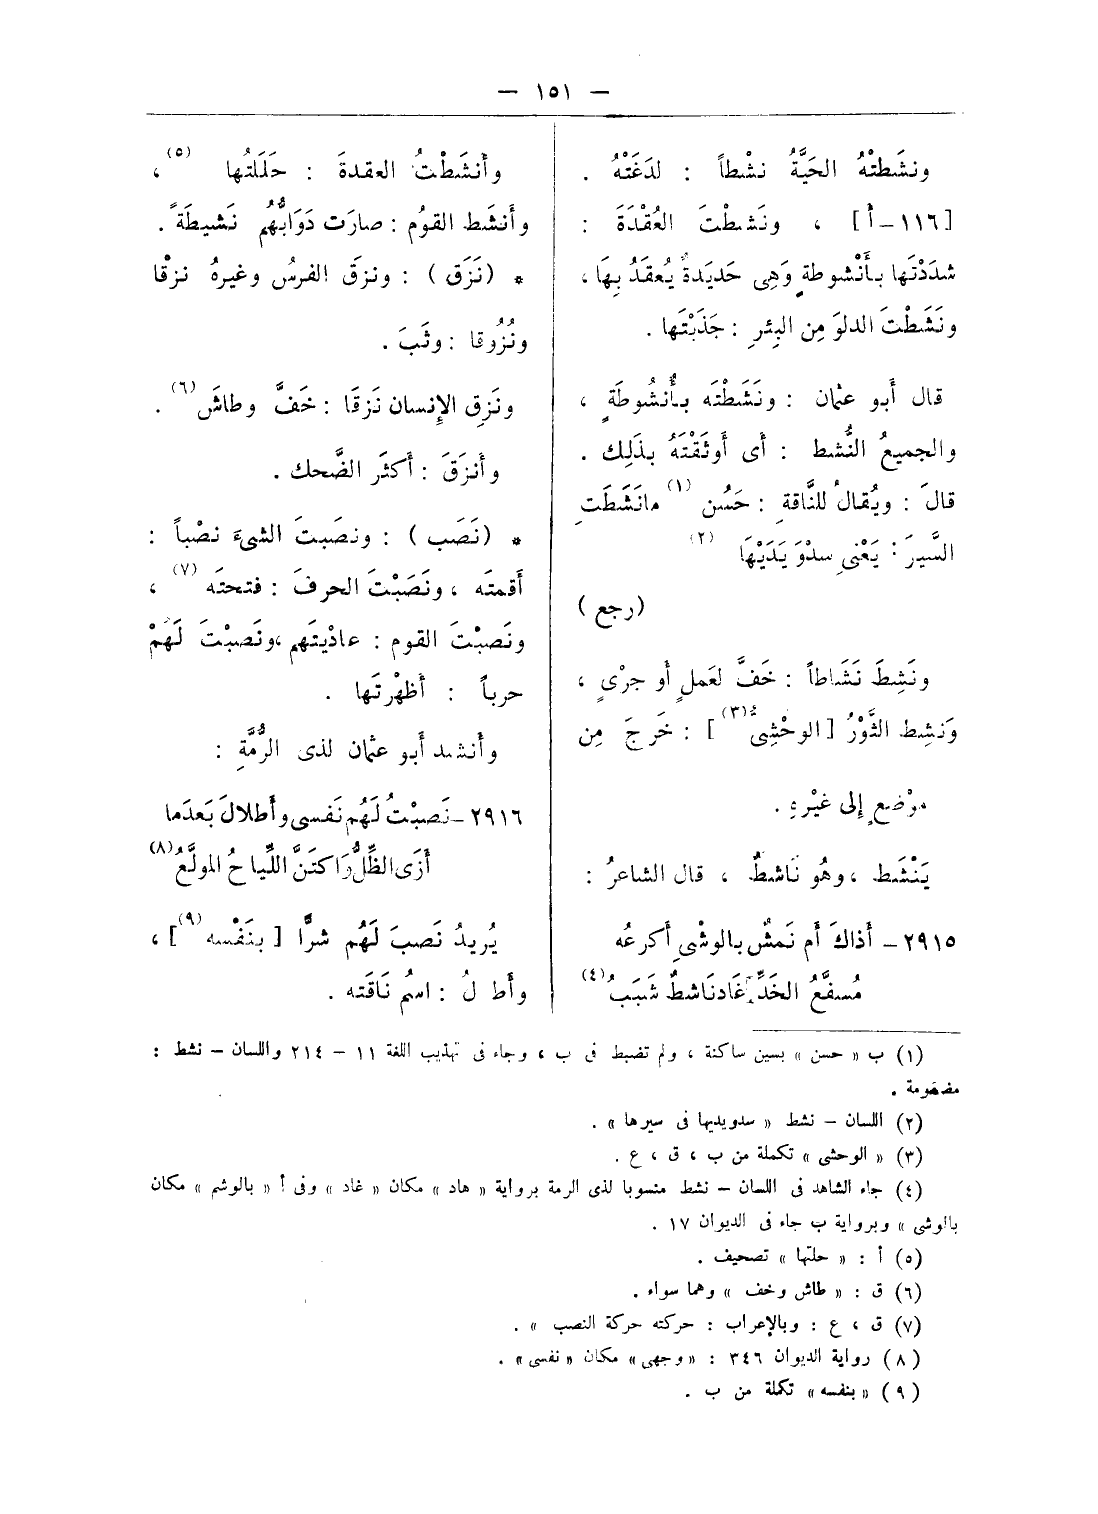 — ١٥١ —
ونشَطتْهُ الحَيَّةُ نشْطاً : لدَغَتْهُ .
[١١٦-أ] ، ونَشطْتَ العُقْدَةَ :
شدَدْتَها بأُنْشوطةٍ وَهى حَديَدةٌ يُعقَدُ بِهَا ،
ونَشَطْتَ الدلوَ مِن البِئرِ : جَذَبْتَها .
قال أَبو عثمان : ونَشَطْتَه بأُنْشُوطَةٍ ،
والجميعُ النُّشط : أى أَوثَقْتَهُ بذَلِك .
قالَ : ويُقالُ للنَّاقةِ : حَسُن (١) مانَشَطَتِ
السَّيرَ : يَعْنى سدْوَ يَدَيْهَا (٢)
(رجع)
ونَشِطَ نَشَاطاً : خَفَّ لعَملٍ أَو جرْىٍ ،
وَنشِط الثَّوْرُ [الوحْشِىُّ (٣)] : خَرجَ مِن
موْضعٍ إِلى غيْرهِ .
يَنْشَط ، وهُو نَاشطٌ ، قال الشاعرُ :
٢٩١٥ – أَذاكَ أَم نَمشٌ بالوشْىِ أَكرعُه
مُسفَّعُ الخَدِّ غَادنَاشطٌ شَبَبُ (٤)
وأَنشَطْتُ العقدةَ : حَلَلتُها (٥) ،
وأَنشَط القوْم : صارَت دَوَابُّهُم نَشيطَةً .
* (نَزَق) : ونزقَ الفرسُ وغيرهُ نزْقا
ونُزُوقا : وثَبَ .
ونَزِق الإِنسان نَزقَا : خَفَّ وطاشَ (٦) .
وأَنزَقَ : أَكثَر الضَّحك .
* (نَصَب) : ونصَبتَ الشىءَ نصْباً :
أَقمتَه ، ونَصَبْتَ الحرفَ : فتحتَه (٧) ،
ونَصبْتَ القوم : عاديْتَهم ،ونَصبْتَ لَهُمْ
حرباً : أَظهرْتَها .
وأَنشد أَبو عثمان لذى الرُّمَّةِ :
٢٩١٦ – نَصبْتُ لَهُم نَفسى وأَطلالَ بَعدَما
أَزَى الظِّلُّ وَاكتَنَّ اللَّياحُ المولَّعُ (٨)
يُريدُ نَصبَ لَهُم شرًّا [ بنَفْسه (٩)] ،
وأَطلالُ : اسمُ نَاقَته .
(١) ب « حسن » بسين ساكنة ، ولم تضبط فى ب ، وجاء فى تهذيب اللغة ١١ – ٢١٤ واللسان – نشط :
مضمومة .
(٢) اللسان – نشط « سدويديها فى سيرها » .
(٣) « الوحشى » تكملة من ب ، ق ، ع .
(٤) جاء الشاهد فى اللسان – نشط منسوبا لذى الرمة برواية « هاد » مكان « غاد » وفى أ « بالوشم » مكان
بالوشى » وبرواية ب جاء فى الديوان ١٧ .
(٥) أ : « حلتها » تصحيف .
(٦) ق : « طاش وخف » وهما سواء .
(٧) ق ، ع : وبالإعراب : حركته حركة النصب » .
(٨) رواية الديوان ٣٤٦ : «وجهى» مكان «نفسى» .
(٩) «بنفسه» تكملة من ب .